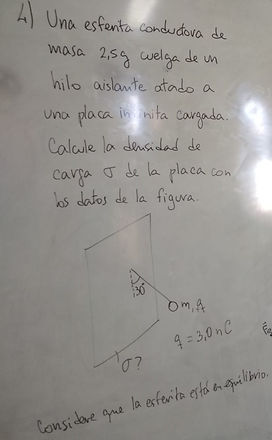 4) Una esferita conductora de
masa 2,5g cuelga de un
hilo aislante atado a
una placa infinita cargada.
Calcule la densidad de
carga σ de la placa con
los datos de la figura.
30°
m, q
q = 3,0 nC
σ?
Considere que la esferita está en equilibrio.